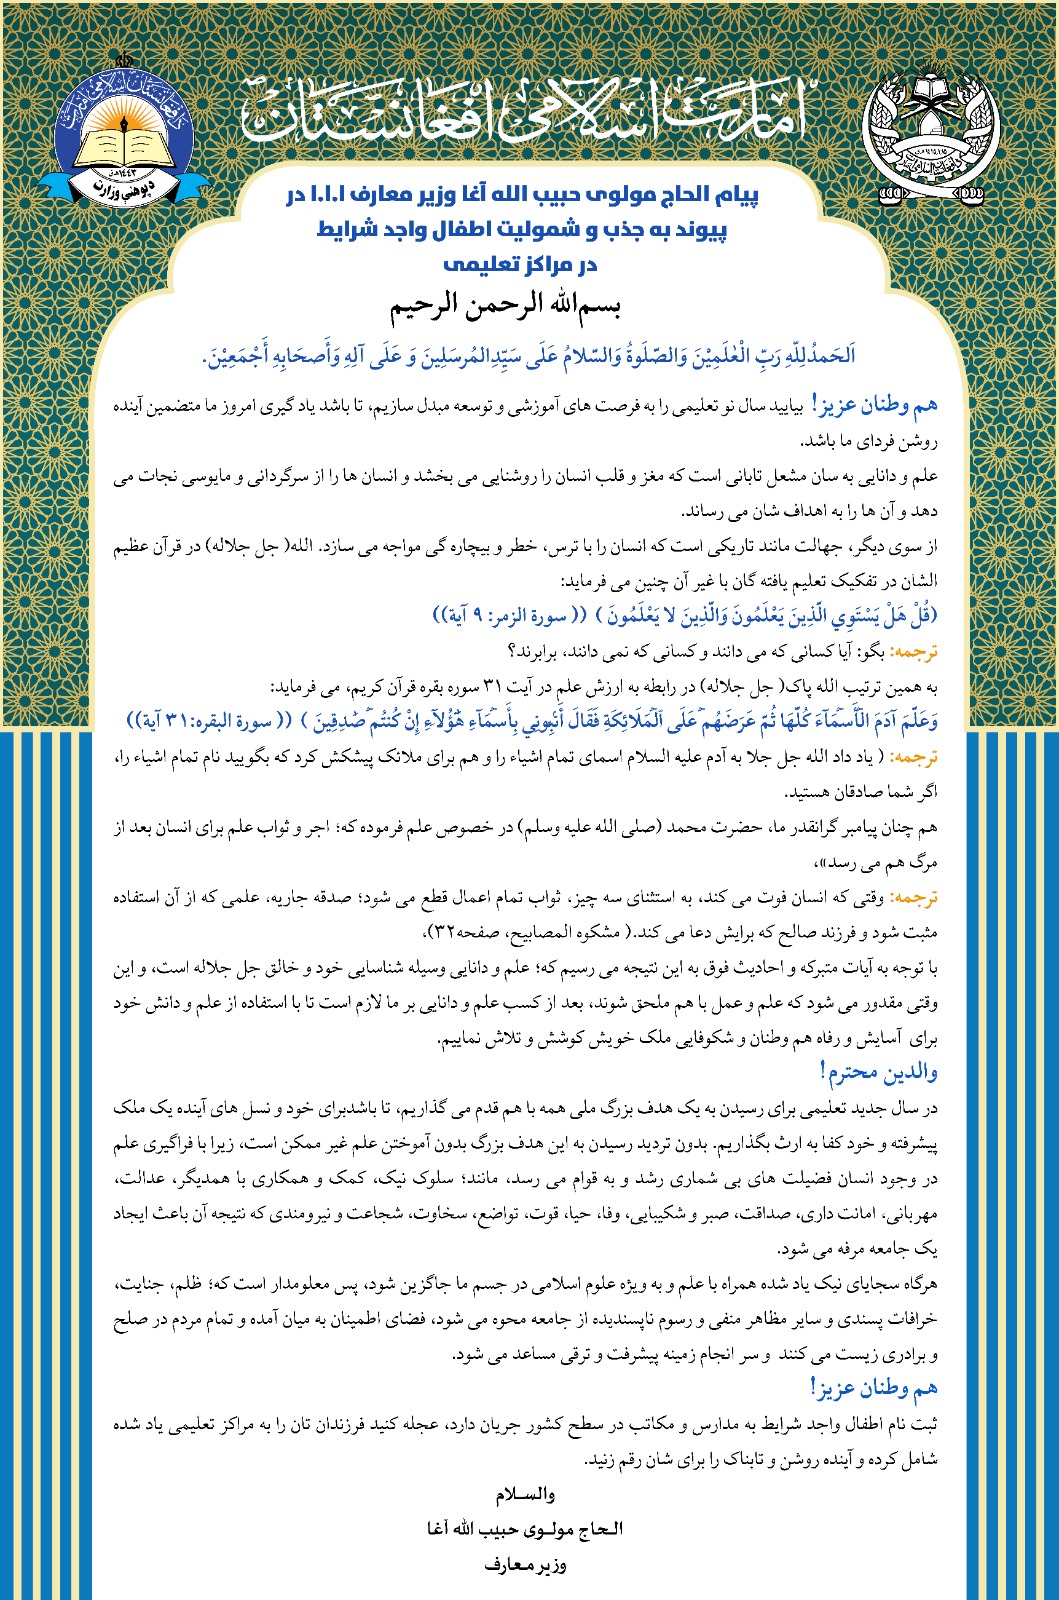 امارت اسلامی افغانستان
د افغانستان اسلامي امارت
۱۴۴۳ هـ ق
د پوهنې وزارت
پیام الحاج مولوی حبیب الله آغا وزیر معارف ا.ا.ا در
پیوند به جذب و شمولیت اطفال واجد شرایط
در مراکز تعلیمی
بسم‌الله الرحمن الرحیم
اَلحَمدُلِلّهِ رَبِّ الْعٰلَمِیْنَ وَالصَّلَوةُ وَالسَّلامُ عَلَی سَیِّدِالمُرسَلِینَ وَ عَلَی آلِهِ وَأَصحَابِهِ أَجْمَعِیْنَ.
هم وطنان عزیز! بیایید سال نو تعلیمی را به فرصت های آموزشی و توسعه مبدل سازیم، تا باشد یاد گیری امروز ما متضمین آینده
روشن فردای ما باشد.
علم و دانایی به سان مشعل تابانی است که مغز و قلب انسان را روشنایی می بخشد و انسان ها را از سرگردانی و مایوسی نجات می
دهد و آن ها را به اهداف شان می رساند.
از سوی دیگر، جهالت مانند تاریکی است که انسان را با ترس، خطر و بیچاره گی مواجه می سازد. الله( جل جلاله) در قرآن عظیم
الشان در تفکیک تعلیم یافته گان با غیر آن چنین می فرماید:
(قُلْ هَلْ يَسْتَوِي الَّذِينَ يَعْلَمُونَ وَالَّذِينَ لا يَعْلَمُونَ ) (( سورة الزمر: ۹ آیة))
ترجمه: بگو: آیا کسانی که می دانند و کسانی که نمی دانند، برابرند؟
به همین ترتیب الله پاک( جل جلاله) در رابطه به ارزش علم در آیت ۳۱ سوره بقره قرآن کریم، می فرماید:
وَعَلَّمَ آدَمَ الْأَسْمَآءَ كُلَّهَا ثُمَّ عَرَضَهُمْ عَلَى الْمَلَائِكَةِ فَقَالَ أَنْبِئُونِي بِأَسْمَآءِ هَٰؤُلَآءِ إِنْ كُنْتُمْ صَٰدِقِينَ ) (( سورة البقره: ۳۱ آیة))
ترجمه: ( یاد داد الله جل جلا به آدم علیه السلام اسمای تمام اشیاء را و هم برای ملائک پیشکش کرد که بگویید نام تمام اشیاء را،
اگر شما صادقان هستید.
هم چنان پیامبر گرانقدر ما، حضرت محمد (صلی الله علیه وسلم) در خصوص علم فرموده که؛ اجر و ثواب علم برای انسان بعد از
مرگ هم می رسد»،
ترجمه: وقتی که انسان فوت می کند، به استثنای سه چیز، ثواب تمام اعمال قطع می شود؛ صدقه جاریه، علمی که از آن استفاده
مثبت شود و فرزند صالح که برایش دعا می کند.( مشکوه المصابیح، صفحه۳۲)،
با توجه به آیات متبرکه و احادیث فوق به این نتیجه می رسیم که؛ علم و دانایی وسیله شناسایی خود و خالق جل جلاله است، و این
وقتی مقدور می شود که علم و عمل با هم ملحق شوند، بعد از کسب علم و دانایی بر ما لازم است تا با استفاده از علم و دانش خود
برای آسایش و رفاه هم وطنان و شکوفایی ملک خویش کوشش و تلاش نماییم.
والدین محترم!
در سال جدید تعلیمی برای رسیدن به یک هدف بزرگ ملی همه با هم قدم می گذاریم، تا باشدبرای خود و نسل های آینده یک ملک
پیشرفته و خود کفا به ارث بگذاریم. بدون تردید رسیدن به این هدف بزرگ بدون آموختن علم غیر ممکن است، زیرا با فراگیری علم
در وجود انسان فضیلت های بی شماری رشد و به قوام می رسد، مانند؛ سلوک نیک، کمک و همکاری با همدیگر، عدالت،
مهربانی، امانت داری، صداقت، صبر و شکیبایی، وفا، حیا، قوت، تواضع، سخاوت، شجاعت و نیرومندی که نتیجه آن باعث ایجاد
یک جامعه مرفه می شود.
هرگاه سجایای نیک یاد شده همراه با علم و به ویژه علوم اسلامی در جسم ما جاگزین شود، پس معلومدار است که؛ ظلم، جنایت،
خرافات پسندی و سایر مظاهر منفی و رسوم ناپسندیده از جامعه محوه می شود، فضای اطمینان به میان آمده و تمام مردم در صلح
و برادری زیست می کنند و سر انجام زمینه پیشرفت و ترقی مساعد می شود.
هم وطنان عزیز!
ثبت نام اطفال واجد شرایط به مدارس و مکاتب در سطح کشور جریان دارد، عجله کنید فرزندان تان را به مراکز تعلیمی یاد شده
شامل کرده و آینده روشن و تابناک را برای شان رقم زنید.
والسلام
الحاج مولوی حبیب الله آغا
وزیر معارف